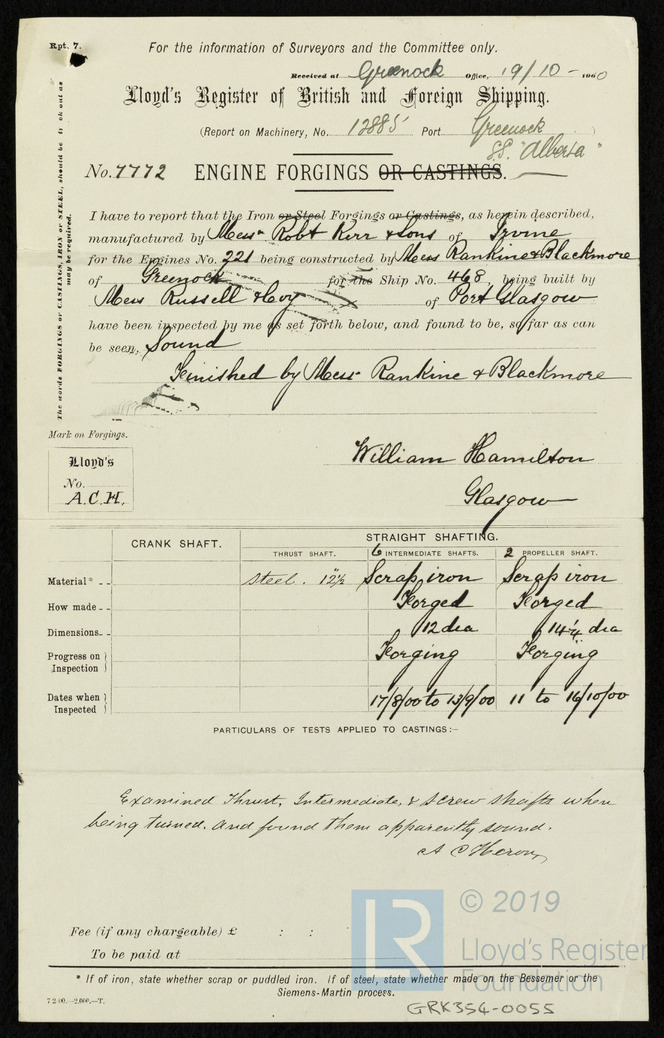 Rpt. 7.
For the information of Surveyors and the Committee only.
Received at Greenock Office, 19/10 - 1900
Lloyd's Register of British and Foreign Shipping.
(Report on Machinery, No. 12885 Port Greenock )
S.S. "Alberta"
No. 7772 ENGINE FORGINGS OR CASTINGS.
The words FORGINGS or CASTINGS, IRON or STEEL, should be struck out as may be required.
I have to report that the Iron or Steel Forgings or Castings, as herein described,
manufactured by Messrs Robt Kerr & Sons of Irvine
for the Engines No. 221 being constructed by Messrs Rankine & Blackmore
of Greenock for the Ship No. 468, being built by
Messrs Russell & Coy of Port Glasgow
have been inspected by me as set forth below, and found to be, so far as can
be seen, Sound
Finished by Messrs Rankine & Blackmore
Mark on Forgings.
Lloyd's
No.
A.C.H.
William Hamilton
Glasgow
CRANK SHAFT. STRAIGHT SHAFTING.
THRUST SHAFT. 6 INTERMEDIATE SHAFTS. 2 PROPELLER SHAFT.
Material* Steel. 12½" Scrap iron Scrap iron
How made Forged Forged
Dimensions 12 dia 14¼ dia
Progress on Inspection Forging Forging
Dates when Inspected 17/8/00 to 13/9/00 11 to 16/10/00
PARTICULARS OF TESTS APPLIED TO CASTINGS:-
Examined Thrust, Intermediate, & Screw shafts when
being turned, and found them apparently sound.
A C Heron
Fee (if any chargeable) £ : :
To be paid at
* If of iron, state whether scrap or puddled iron. If of steel, state whether made on the Bessemer or the
Siemens-Martin process.
7 2 00.—2,000.—T.
GRK354-0055
LR
© 2019
Lloyd's Register
Foundation